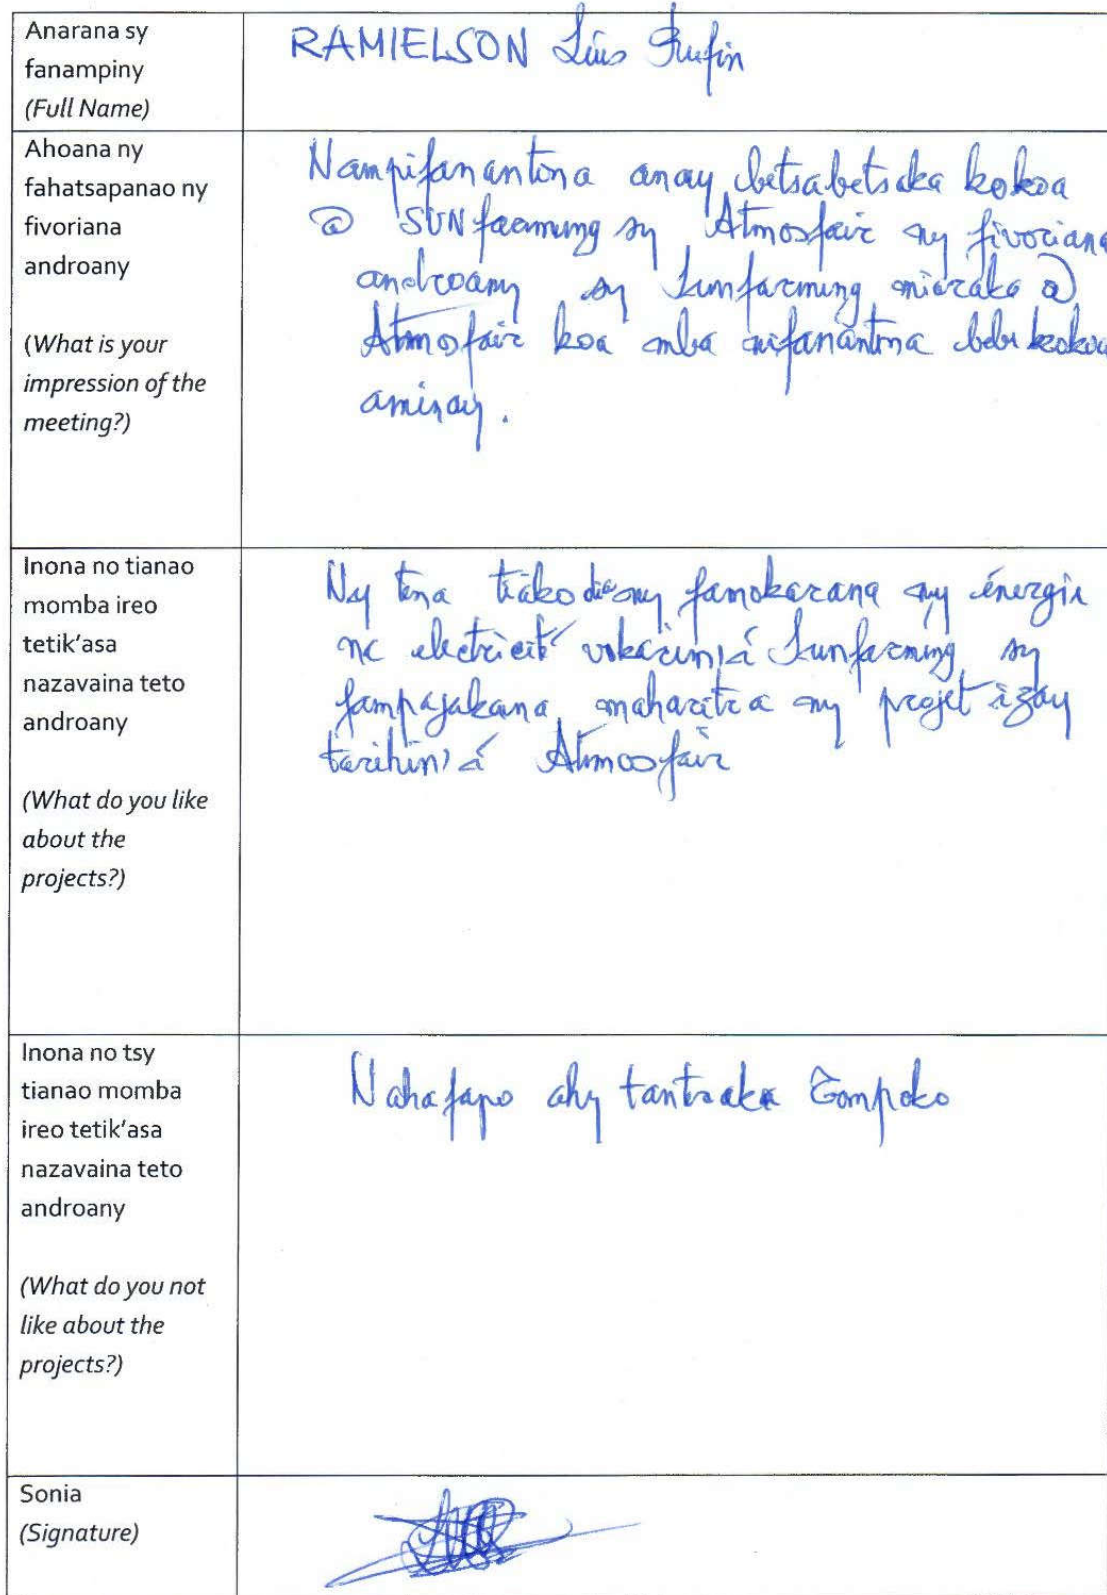 Anarana sy
fanampiny
(Full Name)
RAMIELSON Luis Rufin
Ahoana ny
fahatsapanao ny
fivoriana
androany
(What is your
impression of the
meeting?)
Nampifanantona anay betsabetsaka kokoa
@ SUNfarming sy Atmosfair ny fivoriana
androany sy Sunfarming miaraka @
Atmosfair koa mba nifanantona bebe kokoa
aminay.
Inona no tianao
momba ireo
tetik'asa
nazavaina teto
androany
(What do you like
about the
projects?)
Ny tena tiako dia ny famokarana ny énergie
electricité vokarin'i Sunfarming sy
maharitra ny projet izay
tarihin'i Atmosfair
Inona no tsy
tianao momba
ireo tetik'asa
nazavaina teto
androany
(What do you not
like about the
projects?)
Nahafapo ahy tantsaka Tompoko
Sonia
(Signature)